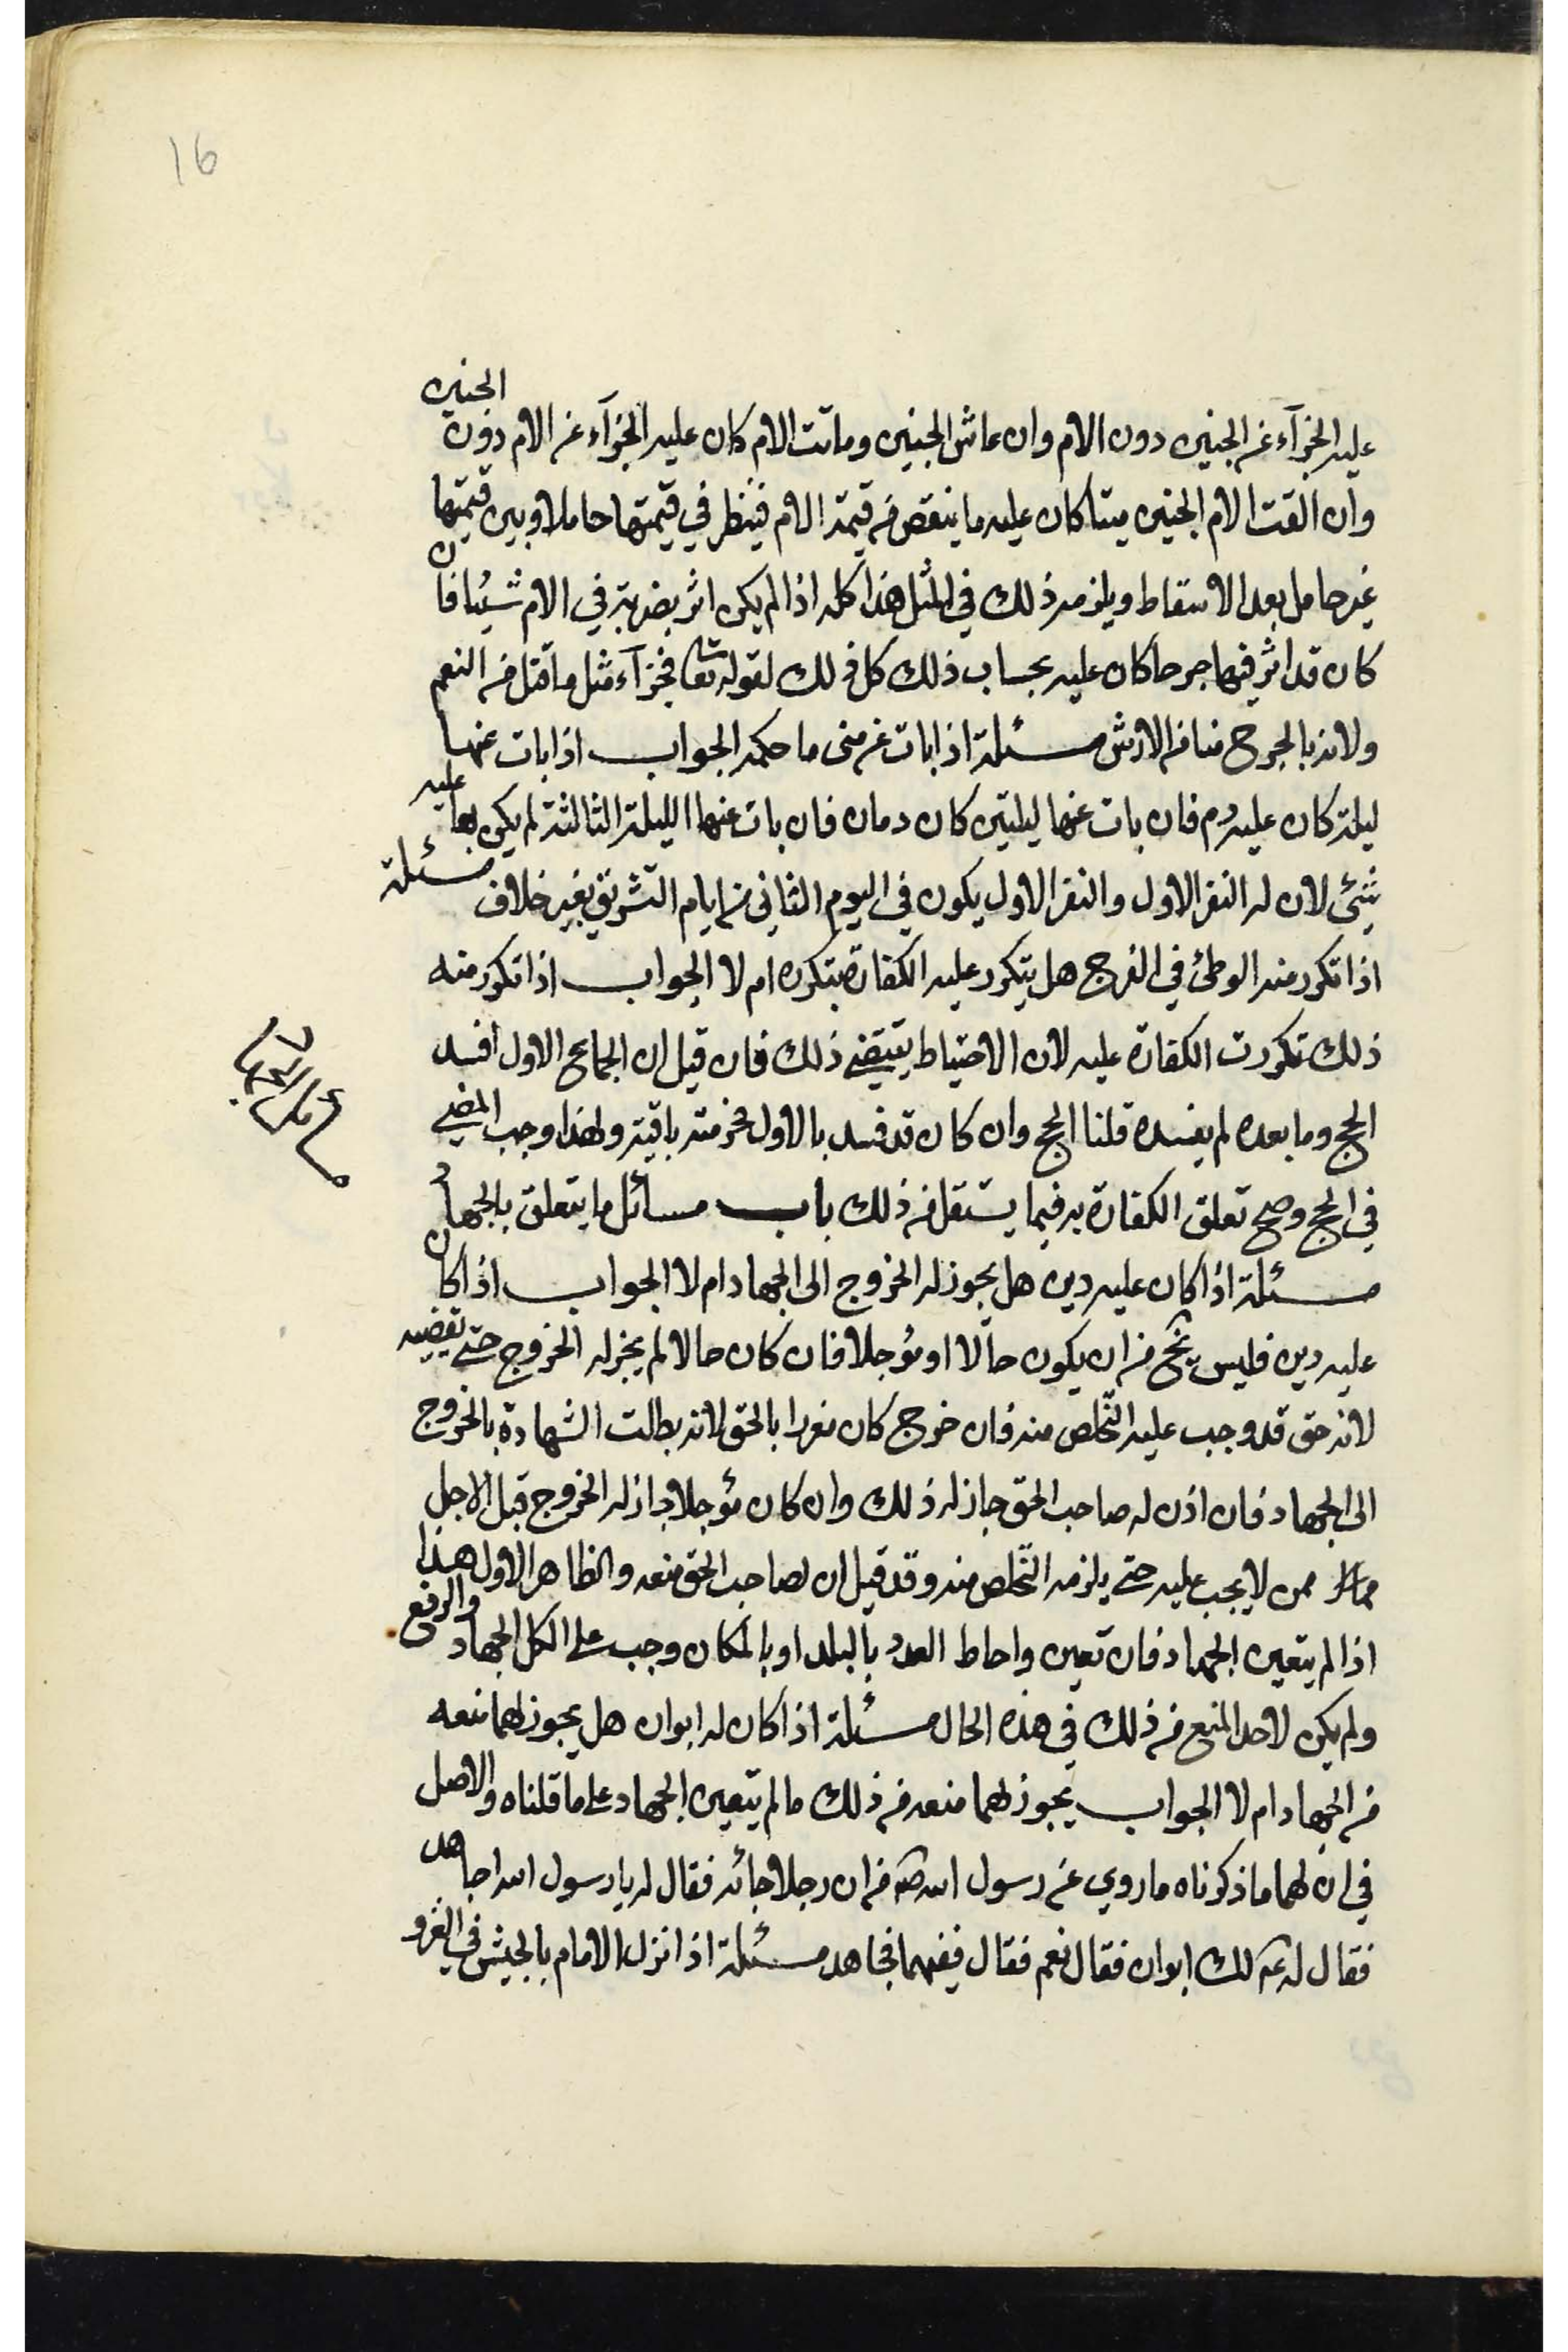 16
عليه الجزآء عن الجنين دون الام وان عاش الجنين وماتت الام كان عليه الجزآء عن الام دون الجنين
وان القت الام الجنين ميتا كان عليه ما ينقص من قيمة الام فينظر في قيمتها حاملا وبين قيمتها
غير حامل بعد الاسقاط ويلزمه ذلك في المثل هذا كله اذا لم يكن اثر بضربته في الام شيئا فان
كان قد اثر فيها جرحا كان عليه بحساب ذلك كل ذلك لقوله تعا فجزآء مثل ما قتل من النعم
ولانه بالجرح ضامن الارش مسئلة اذا بات عن منى ما حكمه الجواب اذا بات عنها
ليلة كان عليه دم فان بات عنها ليلتين كان دمان فان بات عنها الليلة الثالثة لم يكن بها عليه
شيئ لان له النفر الاول والنفر الاول يكون في اليوم الثاني من ايام التشريق بغير خلاف مسئلة
اذا تكرر منه الوطئ في الفرج هل يتكرر عليه الكفارة بتكرره ام لا الجواب اذا تكرر منه
ذلك تكررت الكفارة عليه لان الاحتياط يقتضي ذلك فان قيل ان الجماع الاول افسد
الحج وما بعده لم يفسده قلنا الحج وان كان قد فسد بالاول فحرمته باقية ولهذا وجب المضي
في الحج وصح تعلق الكفارة به فيما يستقل من ذلك باب مسائل ما يتعلق بالجهاد
مسئلة اذا كان عليه دين هل يجوز له الخروج الى الجهاد ام لا الجواب اذا كان
عليه دين فليس يخ من ان يكون حالّا او مؤجلا فان كان حالا لم يجز له الخروج حتى يقضيه
لانه حق قد وجب عليه التخلص منه فان خرج كان مغررا بالحق لانه يطلب الشهادة بالخروج
الى الجهاد فان اذن له صاحب الحق جاز له ذلك وان كان مؤجلا جاز له الخروج قبل الاجل
ممن لا يجب عليه حتى يلزمه التخلص منه وقد قيل ان لصاحب الحق منعه والظاهر الاول هذا
اذا لم يتعين الجهاد فان تعين واحاط العدو بالبلد او بالمكان وجب على الكل الجهاد والدفع
ولم يكن لاحد المنع من ذلك في هذه الحال مسئلة اذا كان له ابوان هل يجوز لهما منعه
من الجهاد ام لا الجواب يجوز لهما منعه من ذلك ما لم يتعين الجهاد على ما قلناه والاصل
في ان لهما ما ذكرناه ما روي عن رسول الله ص من ان رجلا جائه فقال له يا رسول الله اجاهد
فقال له ع لك ابوان فقال نعم فقال ففيهما فجاهد مسئلة اذا نزل الامام بالجيش في الغزو